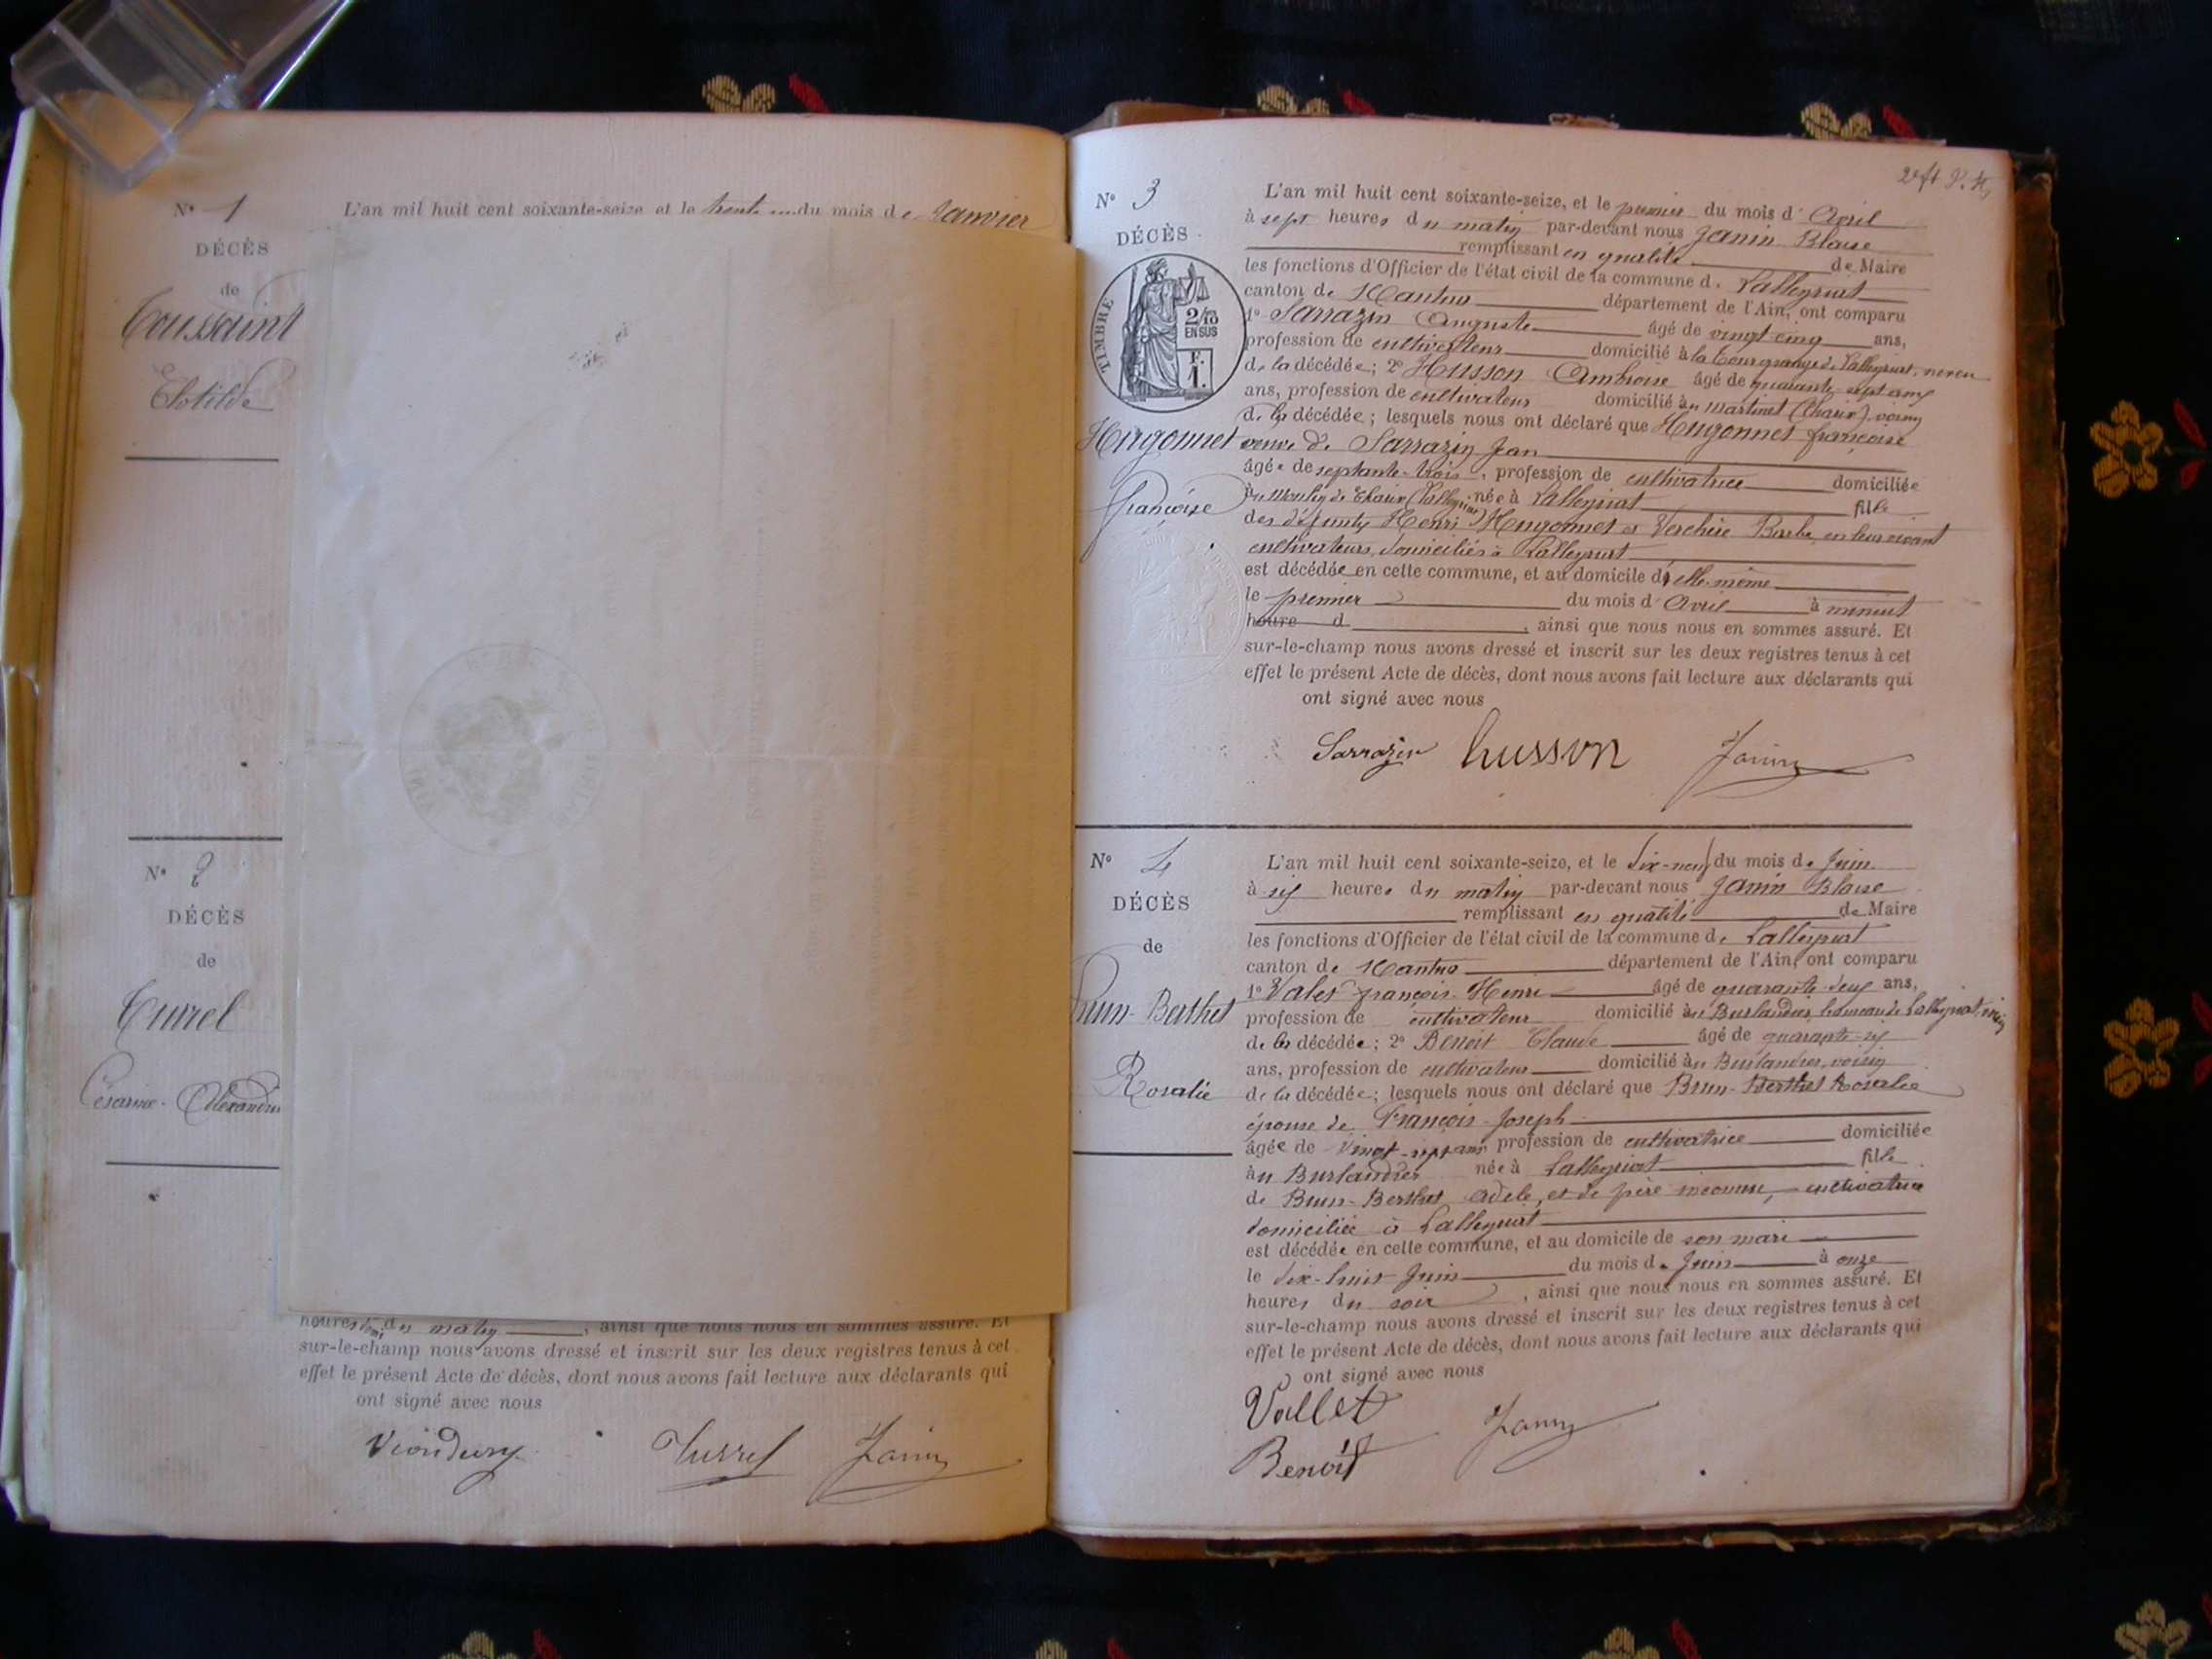 N° 1
DÉCÈS
de
Toussaint
Clotilde
L'an mil huit cent soixante-seize et le trente un du mois de Janvier
N° 2
DÉCÈS
de
Turrel
Césarine-Alexandrine
heures du matin, ainsi que nous nous en sommes assuré. Et
sur-le-champ nous avons dressé et inscrit sur les deux registres tenus à cet
effet le présent Acte de décès, dont nous avons fait lecture aux déclarants qui
ont signé avec nous
Turrel Janin
N° 3
DÉCÈS
TIMBRE
2/10
EN SUS
F.
1.
Hugonnet
françoise
L'an mil huit cent soixante-seize, et le premier du mois d'Avril
à sept heures du matin par-devant nous Janin Blaise
remplissant en qualité de Maire
les fonctions d'Officier de l'état civil de la commune de Lalleyriat
canton de Nantua département de l'Ain, ont comparu
1° Sarrazin Auguste âgé de vingt cinq ans,
profession de cultivateur domicilié à la Lalleyriat, neveu
de la décédée; 2° Husson Ambroise âgé de quarante sept ans
ans, profession de cultivateur domicilié au martinet (Chaux) voisin
de la décédée; lesquels nous ont déclaré que Hugonnet françoise
veuve de Sarrazin Jean
âgée de septante-trois, profession de cultivatrice domiciliée
au Moulin de Chaux (Lalleyriat) née à Lalleyriat fille
des défunts Henri Hugonnet et Verchère Barbe, en leur vivant
cultivateurs, domiciliés à Lalleyriat
est décédée en cette commune, et au domicile d'elle-même
le premier du mois d'Avril à minuit
heure d, ainsi que nous nous en sommes assuré. Et
sur-le-champ nous avons dressé et inscrit sur les deux registres tenus à cet
effet le présent Acte de décès, dont nous avons fait lecture aux déclarants qui
ont signé avec nous
Sarrazin husson Janin
N° 4
DÉCÈS
de
Brun-Berthet
Rosalie
L'an mil huit cent soixante-seize, et le dix-neuf du mois de Juin
à six heures du matin par-devant nous Janin Blaise
remplissant en qualité de Maire
les fonctions d'Officier de l'état civil de la commune de Lalleyriat
canton de Nantua département de l'Ain, ont comparu
1° Valet françois-Henri âgé de quarante-deux ans,
profession de cultivateur domicilié au Burlandier, hameau de Lalleyriat, voisin
de la décédée; 2° Benoit Claude âgé de quarante-six
ans, profession de cultivateur domicilié au Burlandier, voisin
de la décédée; lesquels nous ont déclaré que Brun-Berthet Rosalie
épouse de François-Joseph
âgée de vingt-sept ans profession de cultivatrice domiciliée
au Burlandier née à Lalleyriat fille
de Brun-Berthet Adèle, et de père inconnu, cultivatrice
domiciliée à Lalleyriat
est décédée en cette commune, et au domicile de son mari
le dix-huit Juin du mois de Juin à onze
heures du soir, ainsi que nous nous en sommes assuré. Et
sur-le-champ nous avons dressé et inscrit sur les deux registres tenus à cet
effet le présent Acte de décès, dont nous avons fait lecture aux déclarants qui
ont signé avec nous
Vallet Janin
Benoit